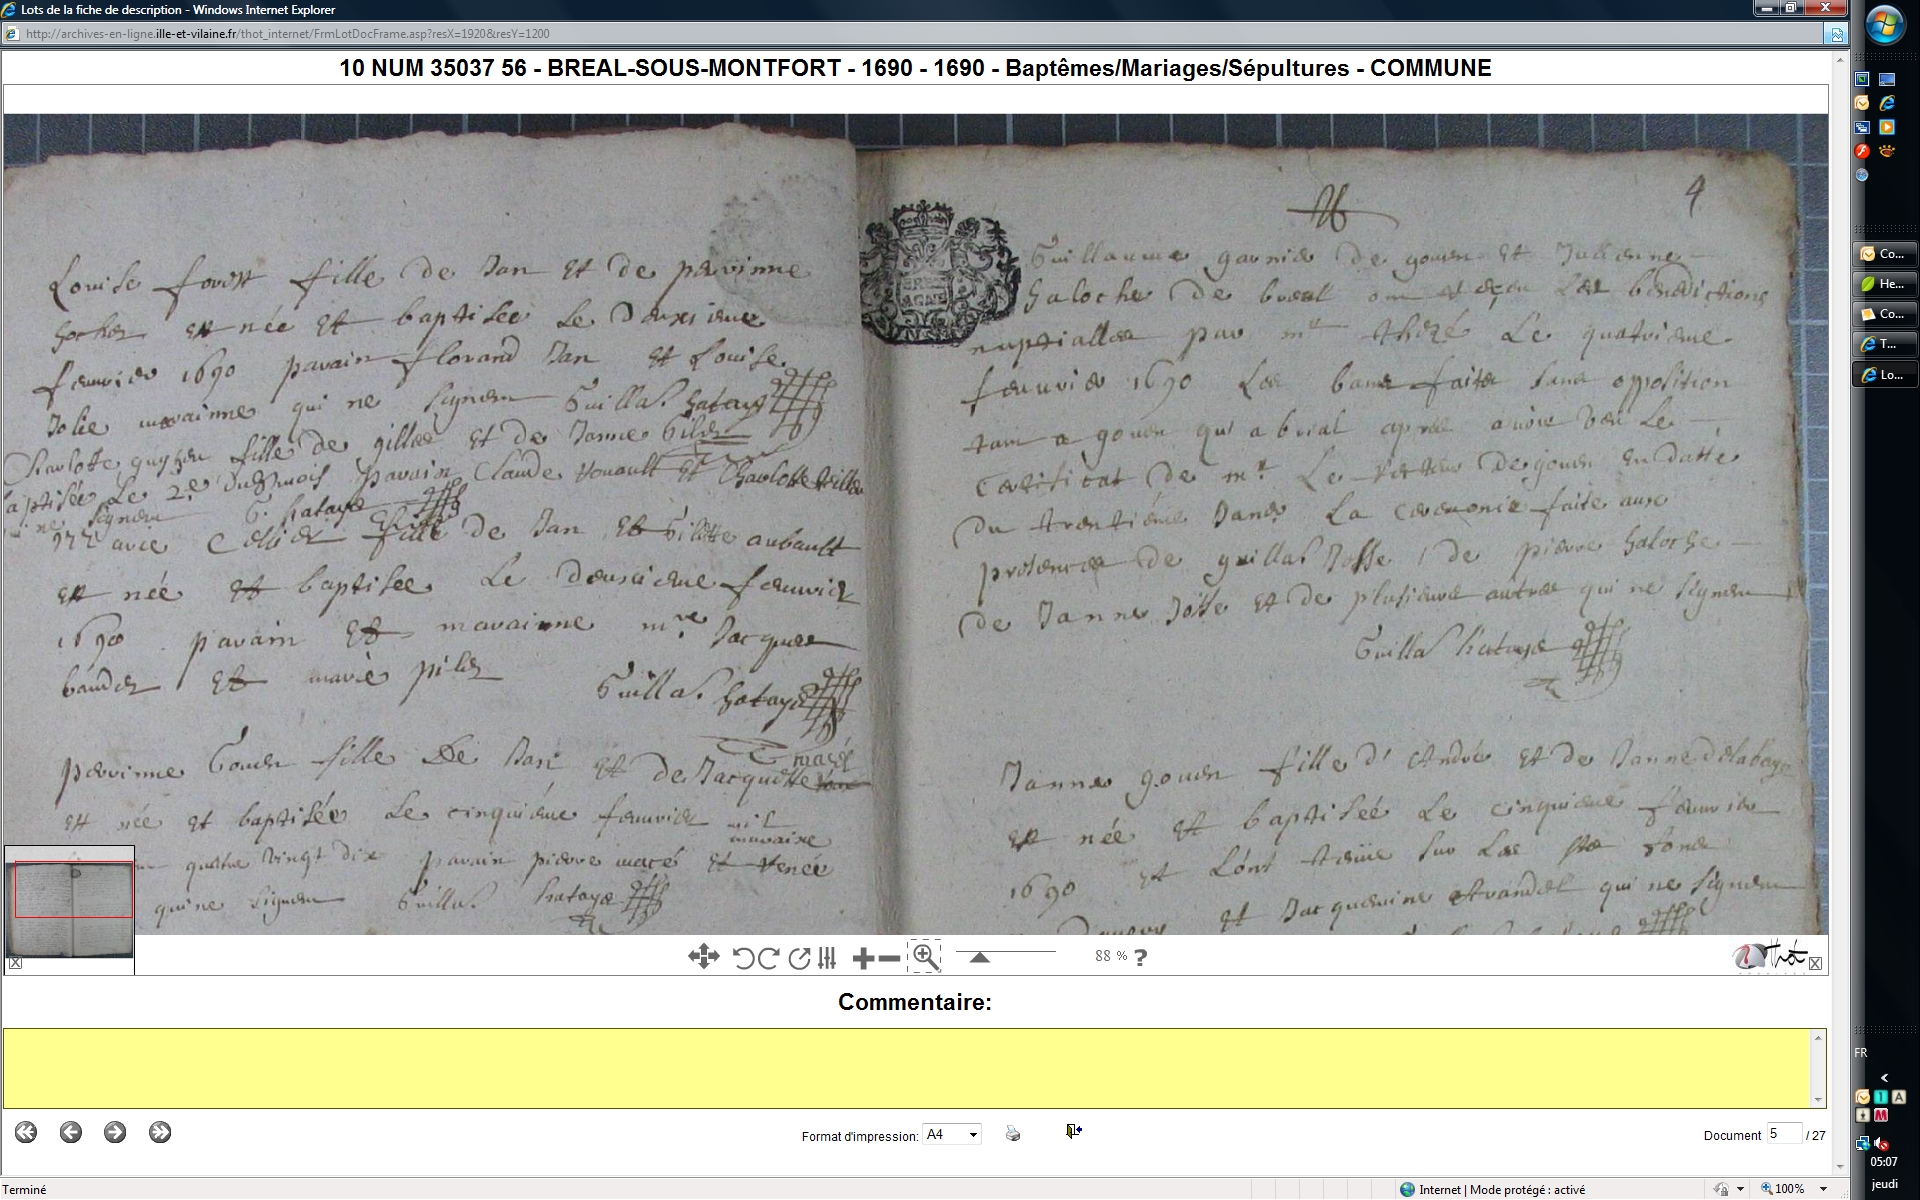 Lots de la fiche de description - Windows Internet Explorer
http://archives-en-ligne.ille-et-vilaine.fr/thot_internet/FrmLotDocFrame.asp?resX=1920&resY=1200
10 NUM 35037 56 - BREAL-SOUS-MONTFORT - 1690 - 1690 - Baptêmes/Mariages/Sépultures - COMMUNE
Louise fille de Jan et de perrinne
est née et baptisée Le deuxieme
feuvrier 1690 parain florand Jan et Louise
Jolie marainne qui ne signent Guill. hataye
Charlotte fille de gilles et de Janne
baptisée Le 2e dud mois parain Claude et Charlotte
ne signent G. hataye
fille de Jan et Gilette aubault
est née et baptisee Le deuxieme feuvrier
1690 parain et marainne Jacques
et marie Guill. hataye
perrinne Gouen fille De Jan et de Jacquette macé
est née et baptisée Le cinquieme feuvrier mil
quatre vingt dix parain pierre macé et renée
maraine
qui ne signent Guill. hataye
4
BRE
AGNE
Guillaume garnier de gouen et Julienne
haloche de breal ont les benedictions
nuptialles par thizé Le quatrieme
feuvrier 1690 Les bans faits sans opposition
tant a gouen qu'a breal apres avoir veu Le
Certificat de mr Le Recteur de gouen en datte
du trentieme Janv. La ceremonie faite aux
presences de guill. Josse, de pierre haloche
de Janne Josse et de plusieurs autres qui ne signent
Guill. hataye
Janne gouen fille d'André et de Janne delahaye
est née et baptisée Le cinquieme feuvrier
1690 et L'ont tenüe sur Les fons
et Jacquemine qui ne signent
88 %
?
Thot
Commentaire:
Format d'impression: A4
Document 5 / 27
Terminé
Internet | Mode protégé : activé
100%
Co...
He...
Co...
T...
Lo...
FR
05:07
jeudi